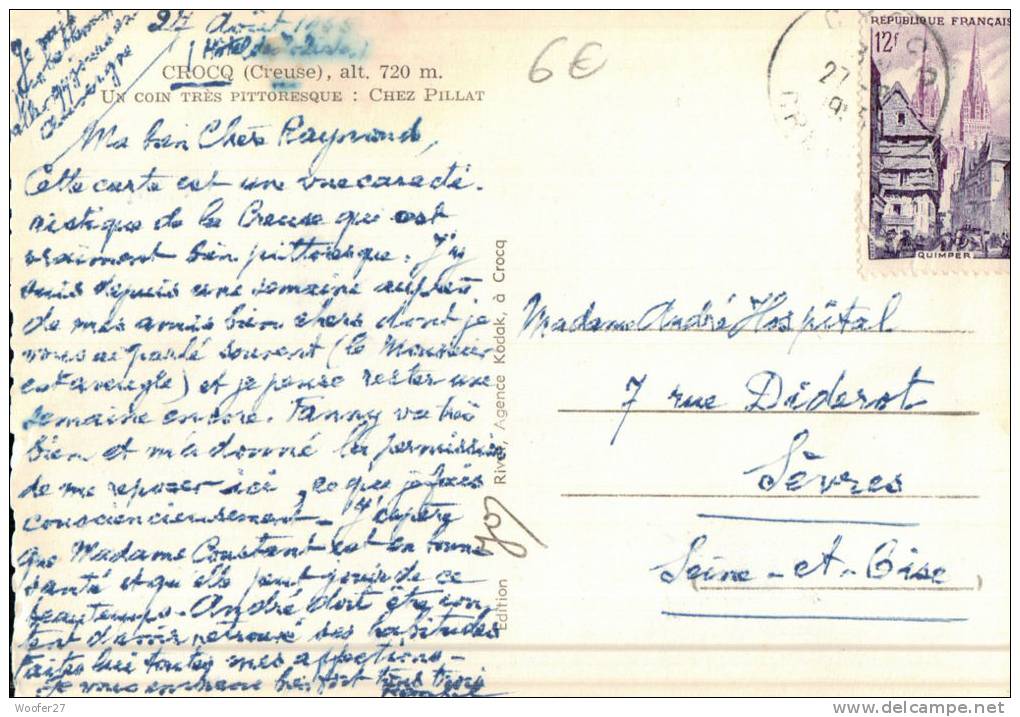 Je suis
allergique
27 Août
(Hôtel de
CROCQ (Creuse), alt. 720 m.
UN COIN TRÈS PITTORESQUE : CHEZ PILLAT
6€
Ma bien Chère Raymonde,
Cette carte est une vue caracté-
ristique de la Creuse qui est
vraiment bien pittoresque. J'y
suis depuis une semaine auprès
de mes amis bien chers dont je
vous ai parlé souvent (le Monsieur
est aveugle) et je pense rester une
semaine encore. Fanny va très
bien et m'a donné la permission
de me reposer ici, ce que je fais
consciencieusement - J'espère
que Madame Constant est en bonne
santé et qu'elle peut jouir de ce
beau temps - André doit être con-
tent d'avoir retrouvé ses habitudes
faites lui toutes mes affections -
Je vous embrasse bien fort tous trois
Edition River, Agence Kodak, à Crocq
REPUBLIQUE FRANÇAIS
12f
QUIMPER
27
Madame André Hospital
7 rue Diderot
Sèvres
Seine-et-Oise
Woofer27
©delcampe.net